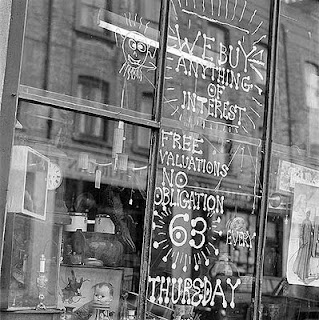 WE BUY
ANYTHING
OF
INTEREST
FREE
VALUATIONS
NO
OBLIGATION
63
EVERY
THURSDAY